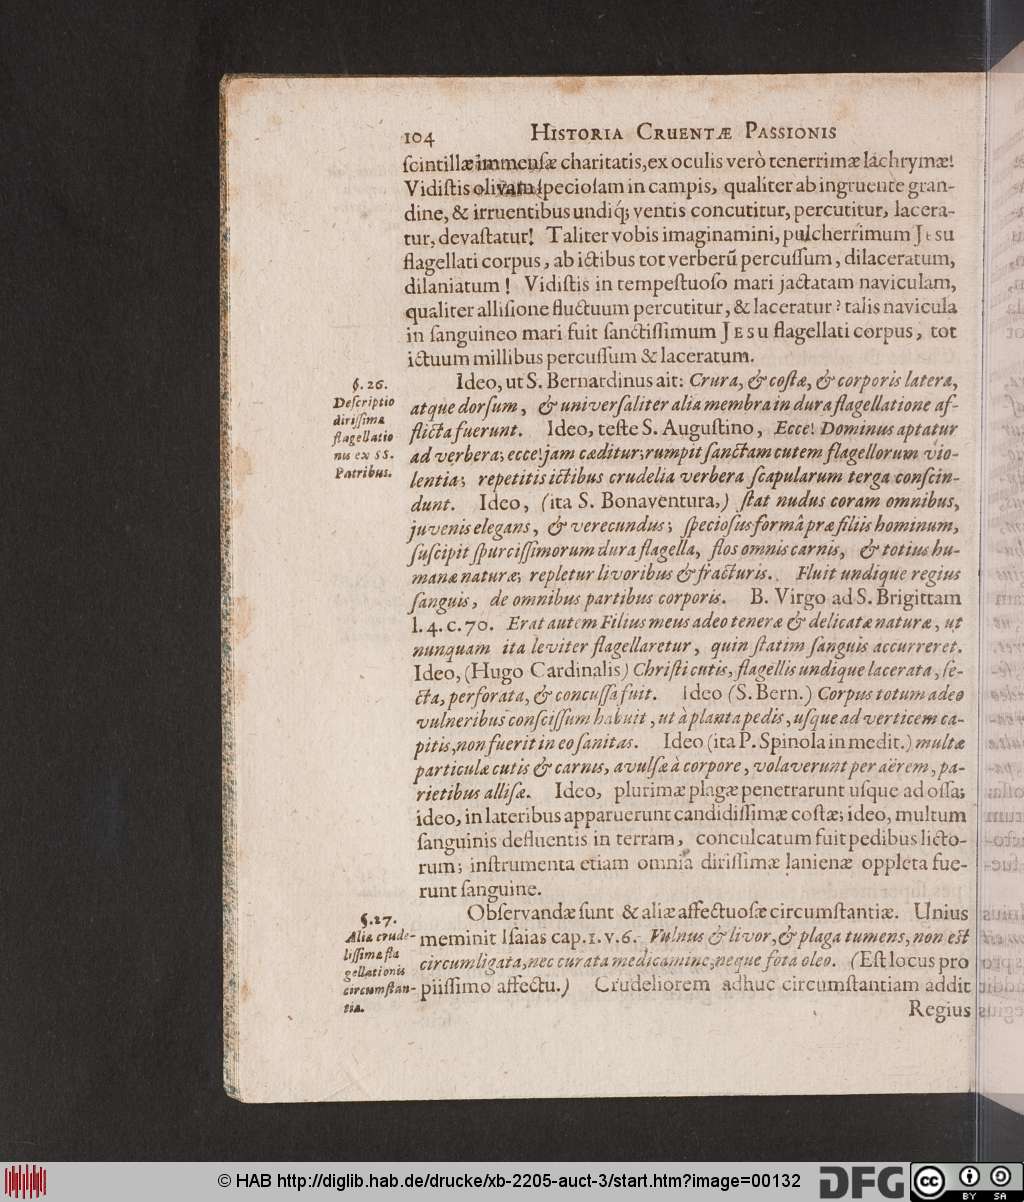 104 HISTORIA CRUENTÆ PASSIONIS
ſcintillæ immenſæ charitatis, ex oculis verò tenerrimæ lachrymæ!
Vidiſtis olivam ſpecioſam in campis, qualiter ab ingruente gran-
dine, & irruentibus undiq́; ventis concutitur, percutitur, lacera-
tur, devaſtatur! Taliter vobis imaginamini, pulcherrimum JESU
flagellati corpus, ab ictibus tot verberū percuſſum, dilaceratum,
dilaniatum! Vidiſtis in tempeſtuoſo mari jactatam naviculam,
qualiter alliſione fluctuum percutitur, & laceratur? talis navicula
in ſanguineo mari fuit ſanctiſſimum JESU flagellati corpus, tot
ictuum millibus percuſſum & laceratum.
§. 26.
Deſcriptio
diriſſimæ
flagellatio
nis ex SS.
Patribus.
Ideo, ut S. Bernardinus ait: Crura, & coſtæ, & corporis latera,
atque dorſum, & univerſaliter alia membra in dura flagellatione af-
flicta fuerunt. Ideo, teſte S. Auguſtino, Ecce! Dominus aptatur
ad verbera; ecce! jam cæditur; rumpit ſanctam cutem flagellorum vio-
lentia; repetitis ictibus crudelia verbera ſcapularum terga conſcin-
dunt. Ideo, (ita S. Bonaventura,) ſtat nudus coram omnibus,
juvenis elegans, & verecundus; ſpecioſus formâ præ filiis hominum,
ſuſcipit ſpurciſſimorum dura flagella, flos omnis carnis, & totius hu-
manæ naturæ; repletur livoribus & fracturis. Fluit undique regius
ſanguis, de omnibus partibus corporis. B. Virgo ad S. Brigittam
l. 4. c. 70. Erat autem Filius meus adeo teneræ & delicatæ naturæ, ut
nunquam ita leviter flagellaretur, quin ſtatim ſanguis accurreret.
Ideo, (Hugo Cardinalis) Chriſti cutis, flagellis undique lacerata, ſe-
cta, perforata, & concuſſa fuit. Ideo (S. Bern.) Corpus totum adeo
vulneribus conſciſſum habuit, ut à planta pedis, uſque ad verticem ca-
pitis, non fuerit in eo ſanitas. Ideo (ita P. Spinola in medit.) multæ
particulæ cutis & carnis, avulſæ à corpore, volaverunt per aërem, pa-
rietibus alliſæ. Ideo, plurimæ plagæ penetrarunt uſque ad oſſa;
ideo, in lateribus apparuerunt candidiſſimæ coſtæ; ideo, multum
ſanguinis defluentis in terram, conculcatum fuit pedibus licto-
rum; inſtrumenta etiam omnia diriſſimæ lanienæ oppleta fue-
runt ſanguine.
§. 27.
Alia crude-
liſſimæ fla
gellationis
circumſtan-
tia.
Obſervandæ ſunt & aliæ affectuoſæ circumſtantiæ. Unius
meminit Iſaias cap. 1. v. 6. Vulnus & livor, & plaga tumens, non eſt
circumligata, nec curata medicamine, neque fota oleo. (Eſt locus pro
piiſſimo affectu.) Crudeliorem adhuc circumſtantiam addit
Regius
© HAB http://diglib.hab.de/drucke/xb-2205-auct-3/start.htm?image=00132
DFG
cc
BY SA